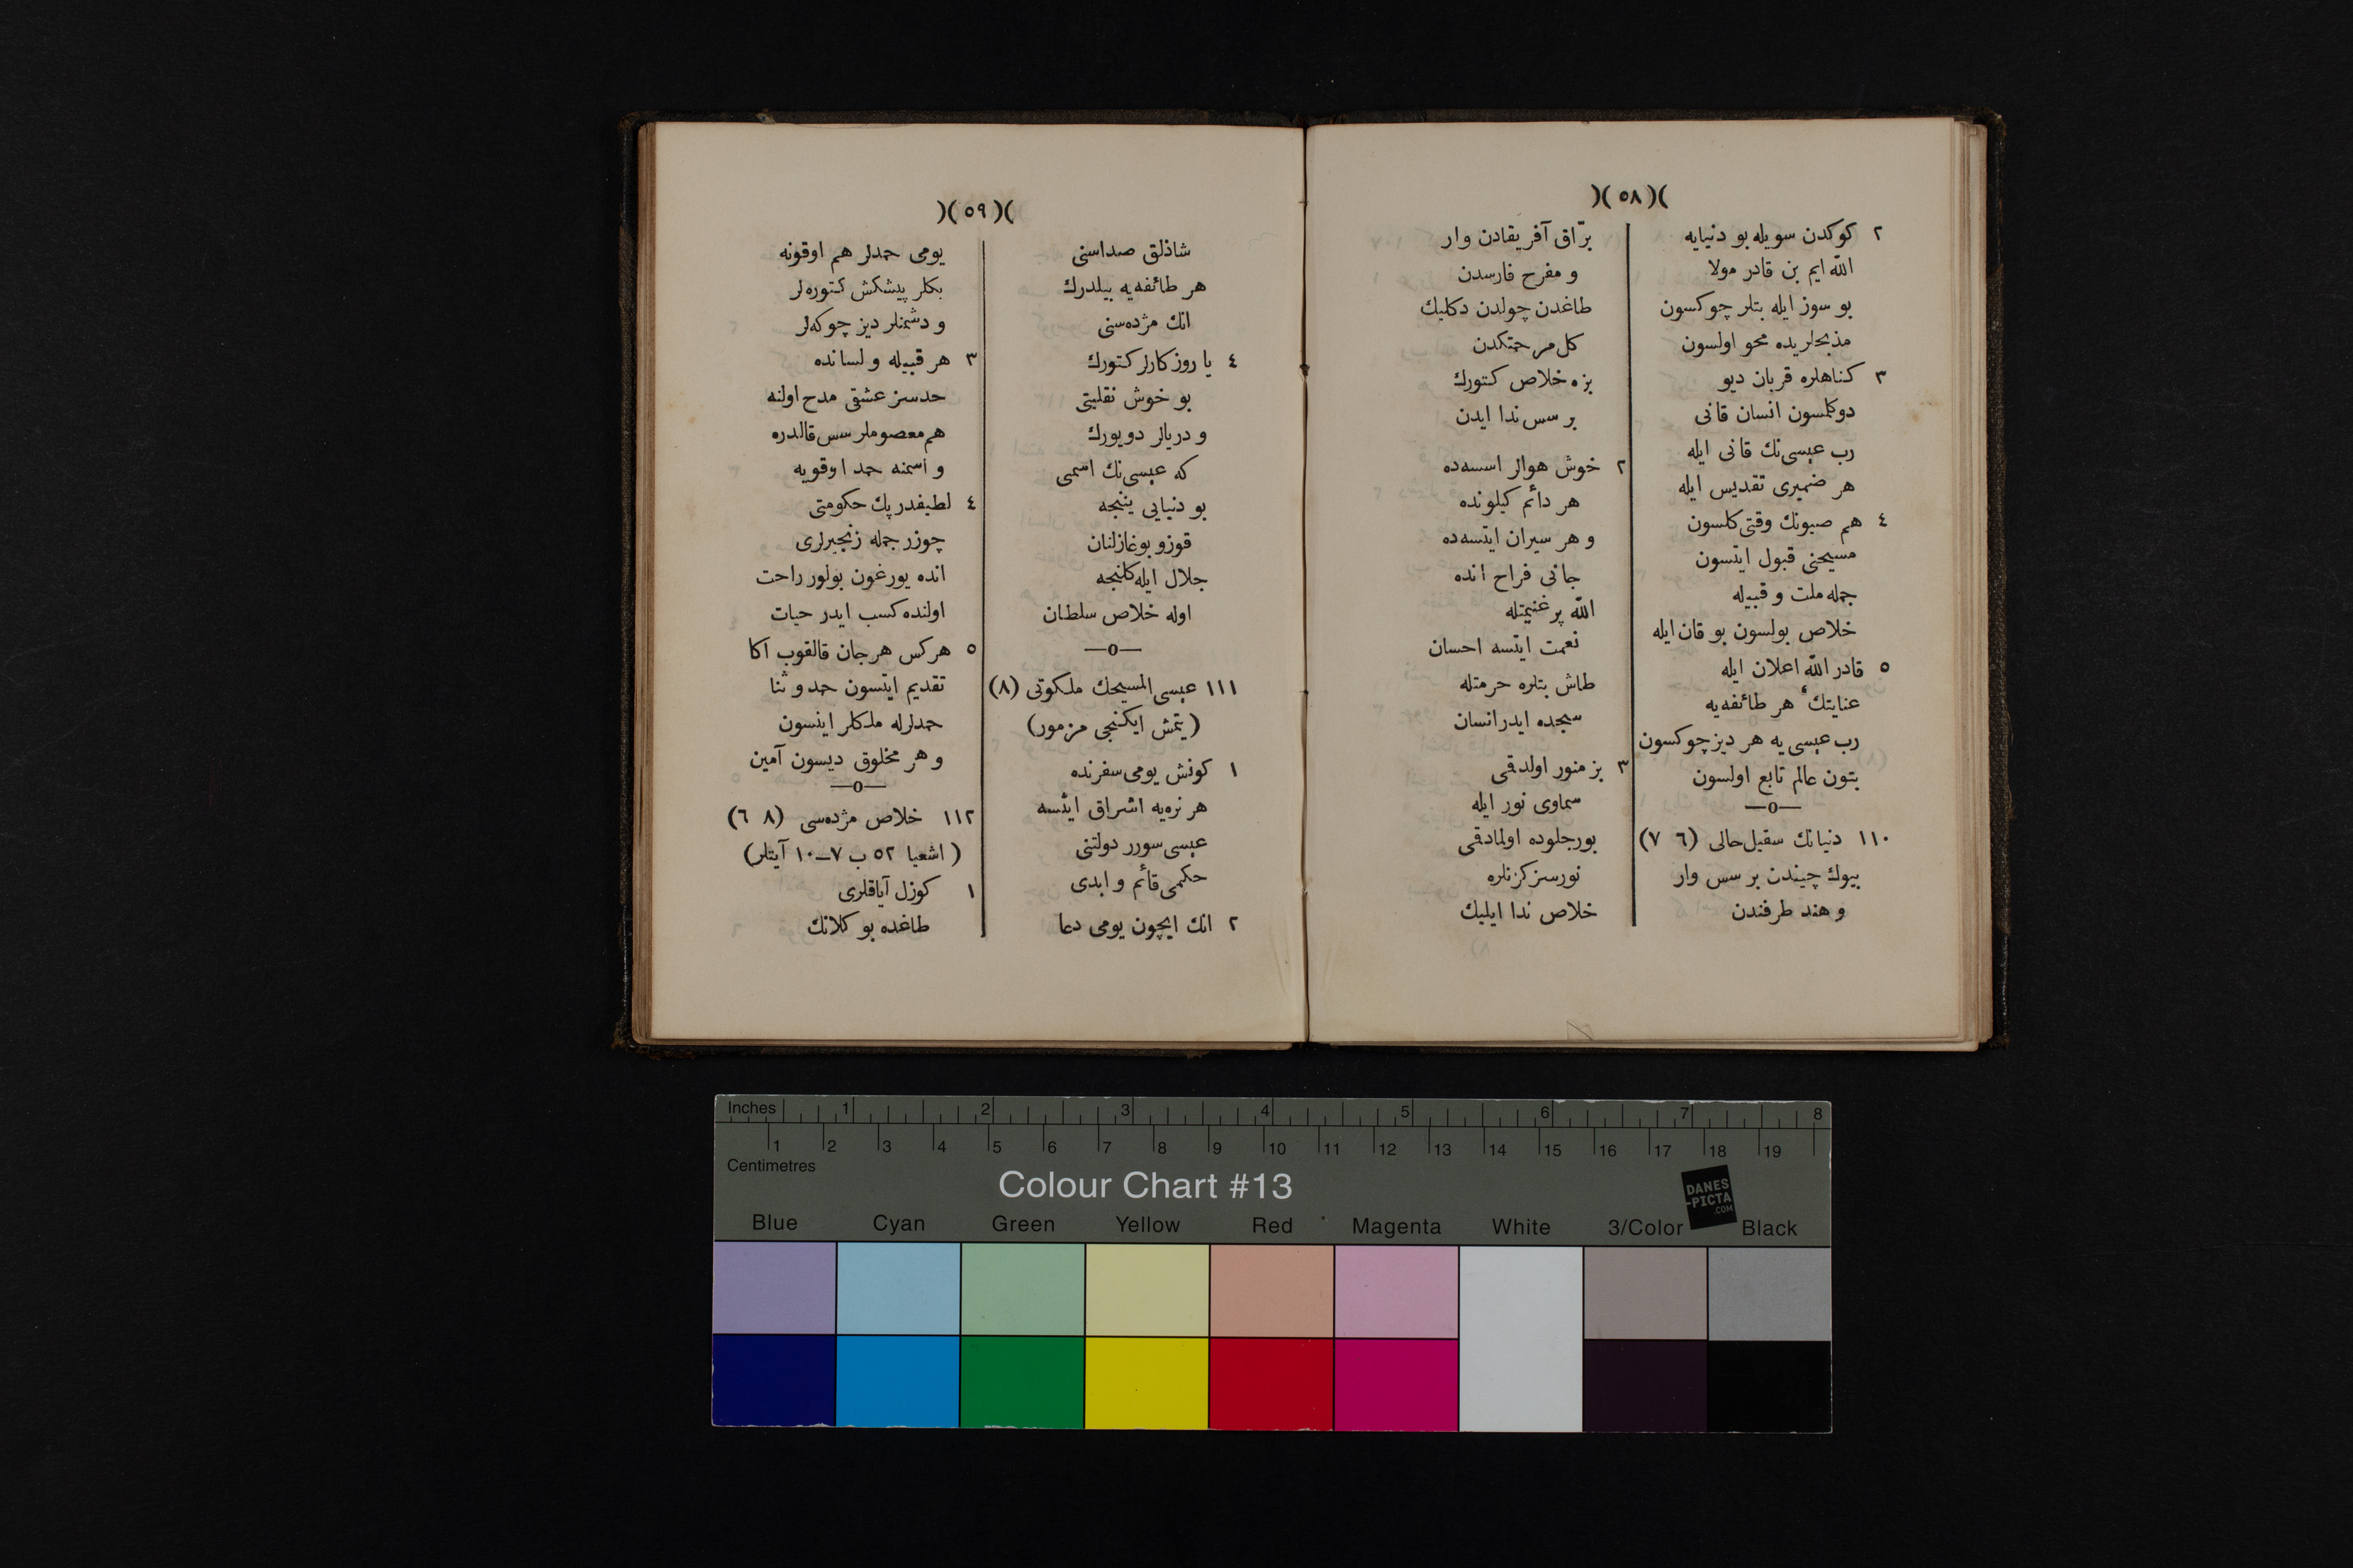 )( ٥٨ )(
٢ كوكدن سويله بو دنيايه
اللّه ايم بن قادر مولا
بو سوز ايله بتلر چوكسون
مذبحلريده محو اولسون
٣ كناهلره قربان ديو
دوكلسون انسان قانى
رب عيسىنك قانى ايله
هر ضميرى تقديس ايله
٤ هم صيونك وقتى كلسون
مسيحنى قبول ايتسون
جمله ملت و قبيله
خلاص بولسون بو قان ايله
٥ قادر اللّه اعلان ايله
عنايتك هر طائفهيه
رب عيسىيه هر ديز چوكسون
بتون عالم تابع اولسون
—o—
١١٠ دنيانك سفيل حالى (٦ ٧)
بيوك چيندن بر سس وار
و هند طرفندن
برّاق آفريقادن وار
و مفرح فارسدن
طاغدن چولدن دكليك
كل مرحمتكدن
بزه خلاص كتورك
بر سس ندا ايدن
٢ خوش هوالر اسسهده
هر دائم كيلونده
و هر سيران ايتسهده
جانى فراح انده
اللّه پر غنيمتله
نعمت ايتسه احسان
طاش بتلره حرمتله
سجده ايدر انسان
٣ بز منور اولدقى
سماوى نور ايله
بورجلوده اولمادقى
نورسز كزنلره
خلاص ندا ايليك
)( ٥٩ )(
شاذلق صداسنى
هر طائفهيه بيلدرك
انك مژدهسنى
٤ يا روزكارلر كتورك
بو خوش نقليتى
و دريالر دويورك
كه عيسىنك اسمى
بو دنيايى ينجه
قوزو بوغازلنان
جلال ايله كلنجه
اوله خلاص سلطان
—o—
١١١ عيسى المسيحك ملكوتى (٨)
(يتمش ايكنجى مزمور)
١ كونش يومى سفرنده
هر نرهيه اشراق ايتسه
عيسى سورر دولتنى
حكمى قائم و ابدى
٢ انك ايچون يومى دعا
يومى حمدلر هم اوقونه
بكلر پيشكش كتورهلر
و دشمنلر ديز چوكهلر
٣ هر قبيله و لسانده
حدسز عشقى مدح اولنه
هم معصوملر سس قالدره
و اسمنه حمد اوقويه
٤ لطيفدر پك حكومتى
چوزر جمله زنجيرلرى
انده يورغون بولور راحت
اولنده كسب ايدر حيات
٥ هركس هر جان قالقوب اكا
تقديم ايتسون حمد و ثنا
حمدلرله ملكلر اينسون
و هر مخلوق ديسون آمين
—o—
١١٢ خلاص مژدهسى (٨ ٦)
(اشعيا ٥٢ ب ٧–١٠ آيتلر)
١ كوزل آياقلرى
طاغده بو كلانك
Inches 1 2 3 4 5 6 7 8
1 2 3 4 5 6 7 8 9 10 11 12 13 14 15 16 17 18 19
Centimetres
Colour Chart #13
DANES
-PICTA
.COM
Blue Cyan Green Yellow Red Magenta White 3/Color Black